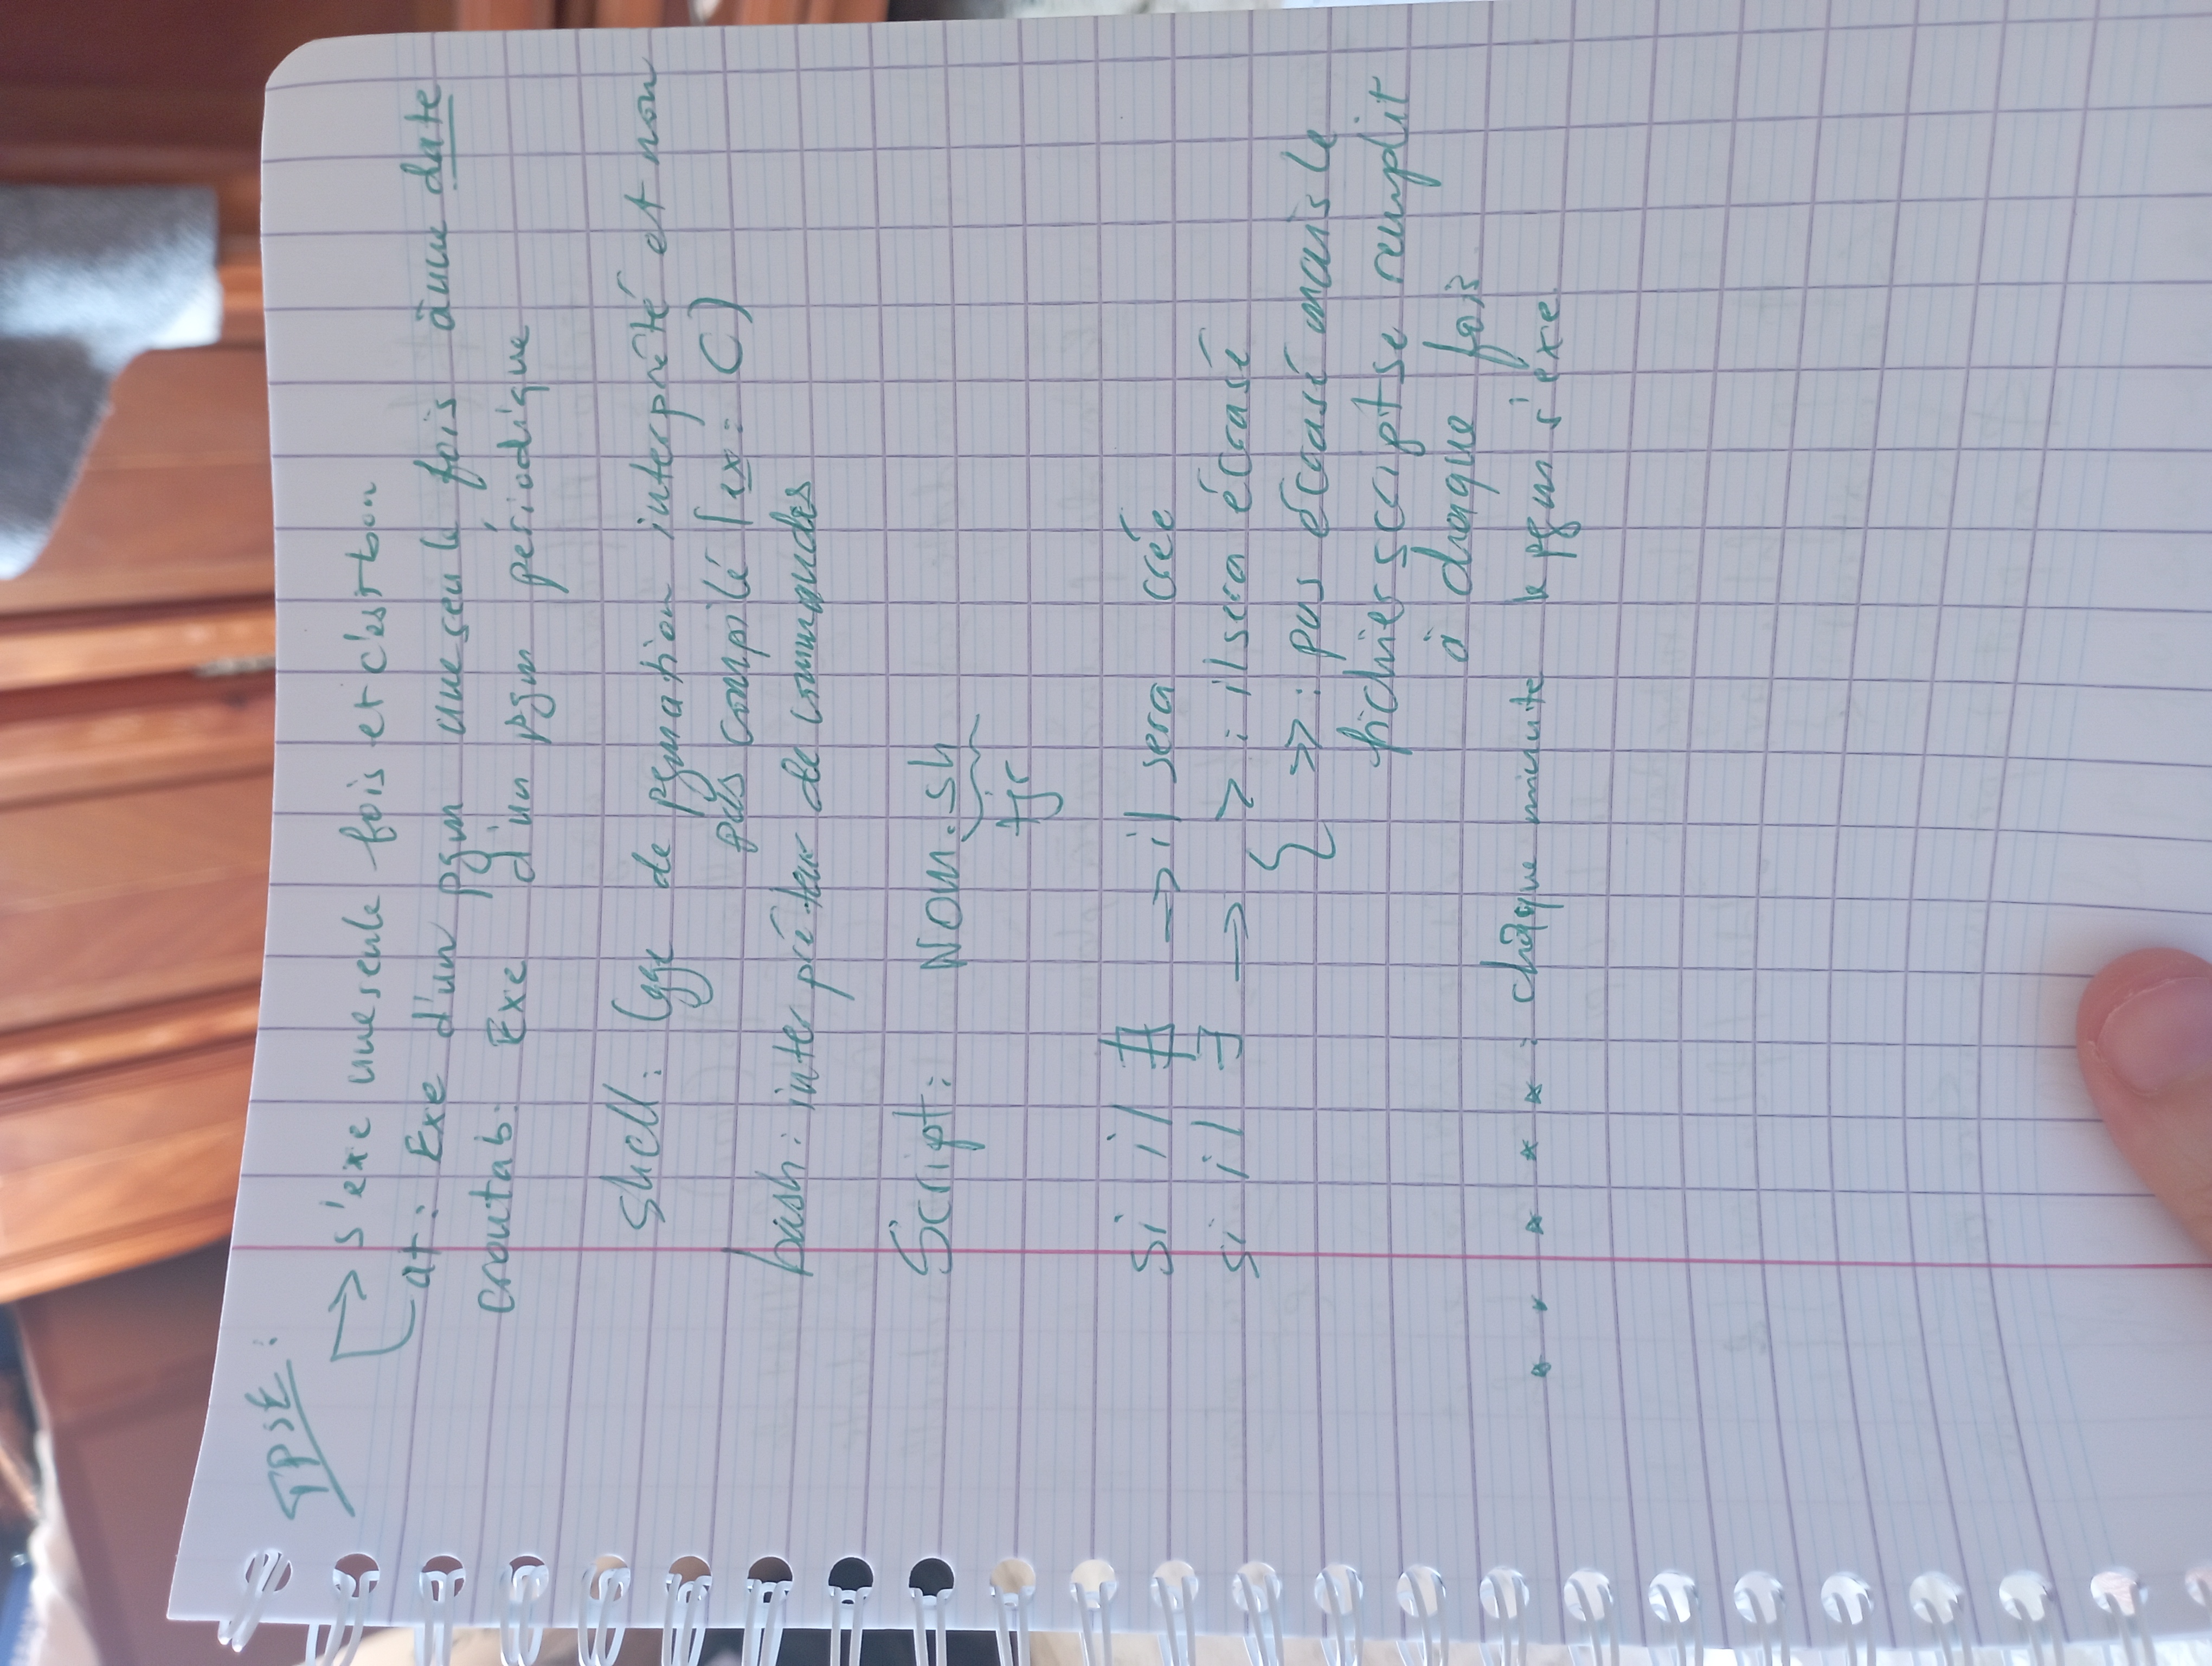 TPSE :
→ s'exe une seule fois et c'est bon
at : Exe d'un pgm une seule fois à une date
crontab : Exe d'un pgm périodique
shell : lgge de pgmation interprêté et non
pas compilé (ex : C)
bash : interprêteur de commandes
Script : Nom.sh
tjr
si il ∄ → il sera crée
si il ∃ → { > : il sera écrasé
>> : pas écrasé mais le
fichier script se remplit
à chaque fois
* * * * * : chaque minute le pgm s'exe